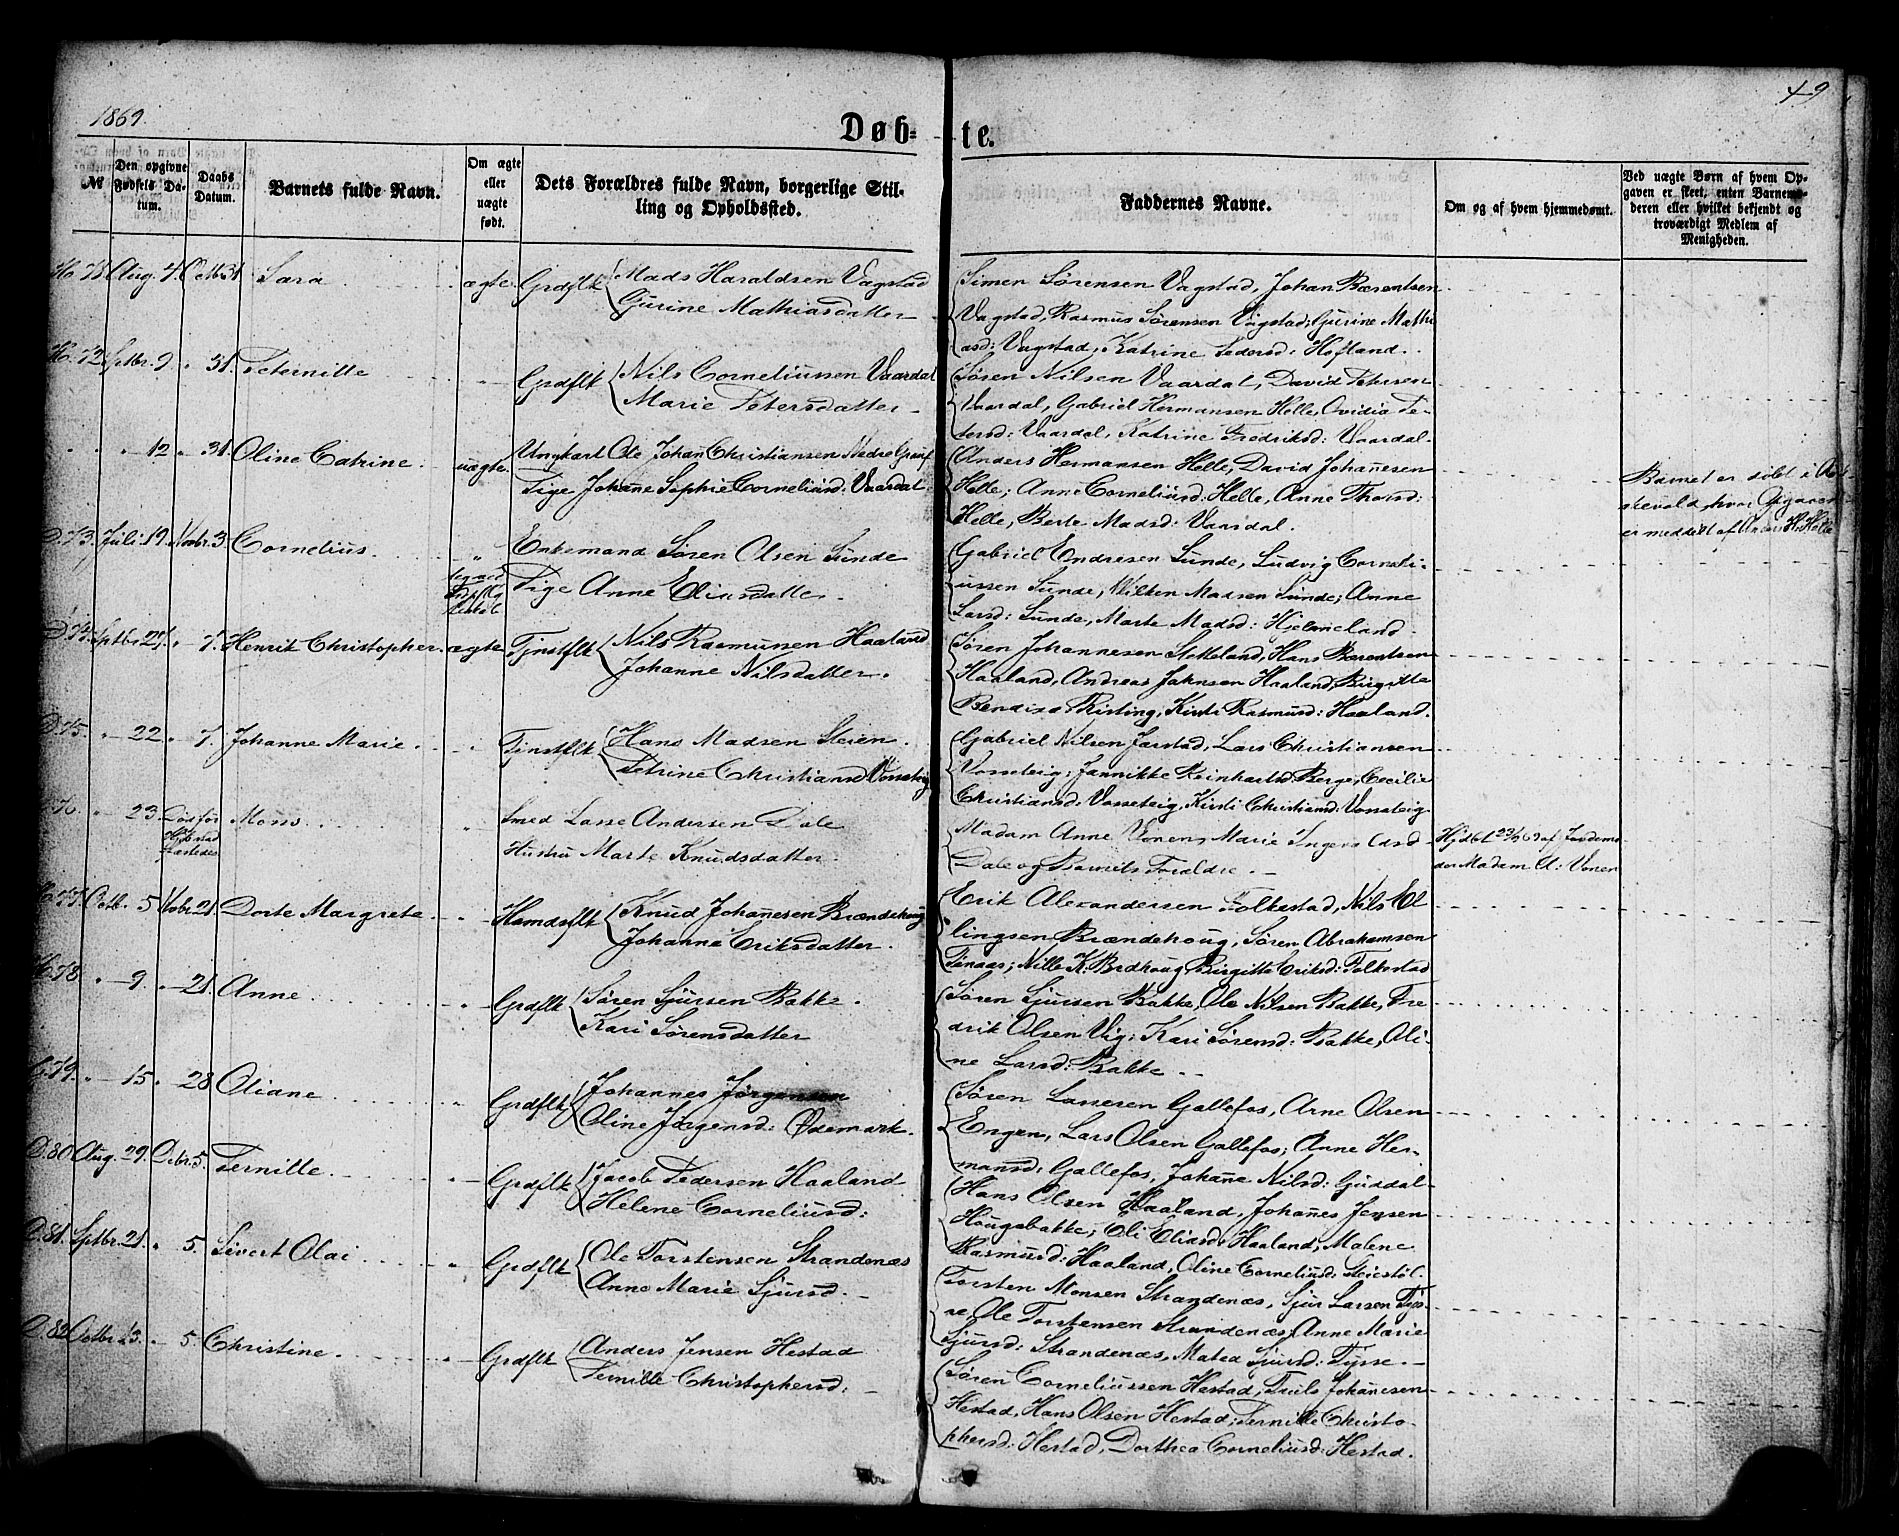 1869.
49
Døb-te.
№
Den opgivne Fødsels Datum.
Daabs Datum.
Barnets fulde Navn.
Om ægte eller uægte født.
Dets Forældres fulde Navn, borgerlige Stilling og Opholdssted.
Faddernes Navne.
Om og af hvem hjemmedøbt.
Ved uægte Børn af hvem Opgaven er skeet, enten Barnemoderen eller hvilket bekjendt og troværdigt Medlem af Menigheden.
Aug. 4 Octb. 31 Sara ægte Grdflk Mads Haraldsen Vagstad
Gurine Mathiasdatter
Simen Sørensen Vagstad, Johan Bærentsen
Vagstad, Rasmus Sørensen Vagstad; Gurine Mathi
asd: Vagstad, Katrine Pedersd: Hofland.
72 Septbr. 9 " 31. Peternille " Grdflk Nils Corneliussen Vaardal
Marie Petersdatter
Søren Nilsen Vaardal, David Petersen
Vaardal, Gabriel Hermansen Helle, Ovidia Pe-
tersd: Vaardal, Katrine Fredriksd: Vaardal.
" " 12 " 31. Oline Catrine. uægte. Ungkarl Ole Johan Christiansen
Pige Johanne Sophie Corneliusd: Vaardal.
Anders Hermansen Helle, David Johannesen
Helle; Anne Corneliusd: Helle, Anne Thorsd:
Helle, Berte Madsd: Vaardal.
Barnet er
hvor Opgaven
er meddelt af H. Helle
D. 73. Juli 19. Novbr. 3. Cornelius. " Enkemand Søren Olsen Sunde
Pige Anne Eliasdatter.
Gabriel Endresen Sunde, Ludvig Corneli-
ussen Sunde, Wilken Madsen Sunde; Anne
Larsd: Sunde, Marte Madsd: Hjelmeland.
D. 74. Septbr. 21. " 7. Henrik Christopher. ægte Tjnstflk Nils Rasmussen Haaland
Johanne Nilsdatter.
Søren Johannesen Stokeland, Hans Bærentsen
Haaland, Andreas Johnsen Haaland, Birgitte
Kisting, Kirsti Rasmusd: Haaland.
D. 75. " 22. " 7. Johanne Marie. " Tjnstflk Hans Madsen Steien.
Petrine Christiansd Vosseteig
Gabriel Nilsen Jarstad, Lars Christiansen
Vosseteig; Jannikke Reinhartsd: Berge, Cecilie
Christiansd: Vosseteig, Kirsti Christiansd: Vosseteig.
76 " 23. Død før Mons. " Smed Lasse Andersen Dale
Hustru Marte Knudsdatter.
Madam Anne Vonen, Marie
Dale og Barnets Forældre.
Hjdbt 23/9 69 af Jordemo-
der Madam A. Vonen
77. Octb. 5 Novbr. 21. Dorte Margrete " Hsmdsflk Knud Johannesen Brændehoug
Johanne Eriksdatter.
Erik Alexandersen Folkestad, Nils El
lingsen Brændehoug, Søren Abrahamsen
Birgitte Eriksd: Folkestad
78 " 9 " 21. Anne " Grdflk Søren Sjursen Bakke.
Kari Sørensdatter
Søren Sjursen Bakke, Ole Nilsen Bakke, Fre
drik Olsen Vig; Kari Sørensd: Bakke, Oli-
ne Larsd: Bakke
79. " 15 " 28 Oliane " Grdflk Johannes Jørgensen
Oline Jørgensd: Ødemark.
Søren Lassesen Gallefos, Arne Olsen
Engen, Lars Olsen Gallefos; Anne Her-
mansd: Gallefos, Johanne Nilsd: Guddal
D. 80 Aug. 29. Debr. 5. Pernille. " Grdflk Jacob Pedersen Haaland
Helene Corneliusd:
Hans Olsen Haaland, Johannes Jensen
Hougsbakke; Eli Eliasd: Haaland, Malene
Rasmusd: Haaland, Oline Corneliusd:
D. 81. Septbr. 21. " 5. Sivert Olai " Grdflk Ole Torstensen Strandenæs
Anne Marie Sjursd.
Torsten Monsen Strandenæs, Sjur Larsen Tys-
se, Ole Torstensen Strandenæs; Anne Marie
Sjursd: Strandenæs, Matea Sjursd: Tysse.
D. 82 Octbr. 13. " 5. Christine. " Grdflk Anders Jensen Hestad
Pernille Christophersd:
Søren Corneliussen Hestad, Truls Johannesen
Hestad, Hans Olsen Hestad; Pernille Christo-
phersd: Hestad, Dorthea Corneliusd: Hestad.